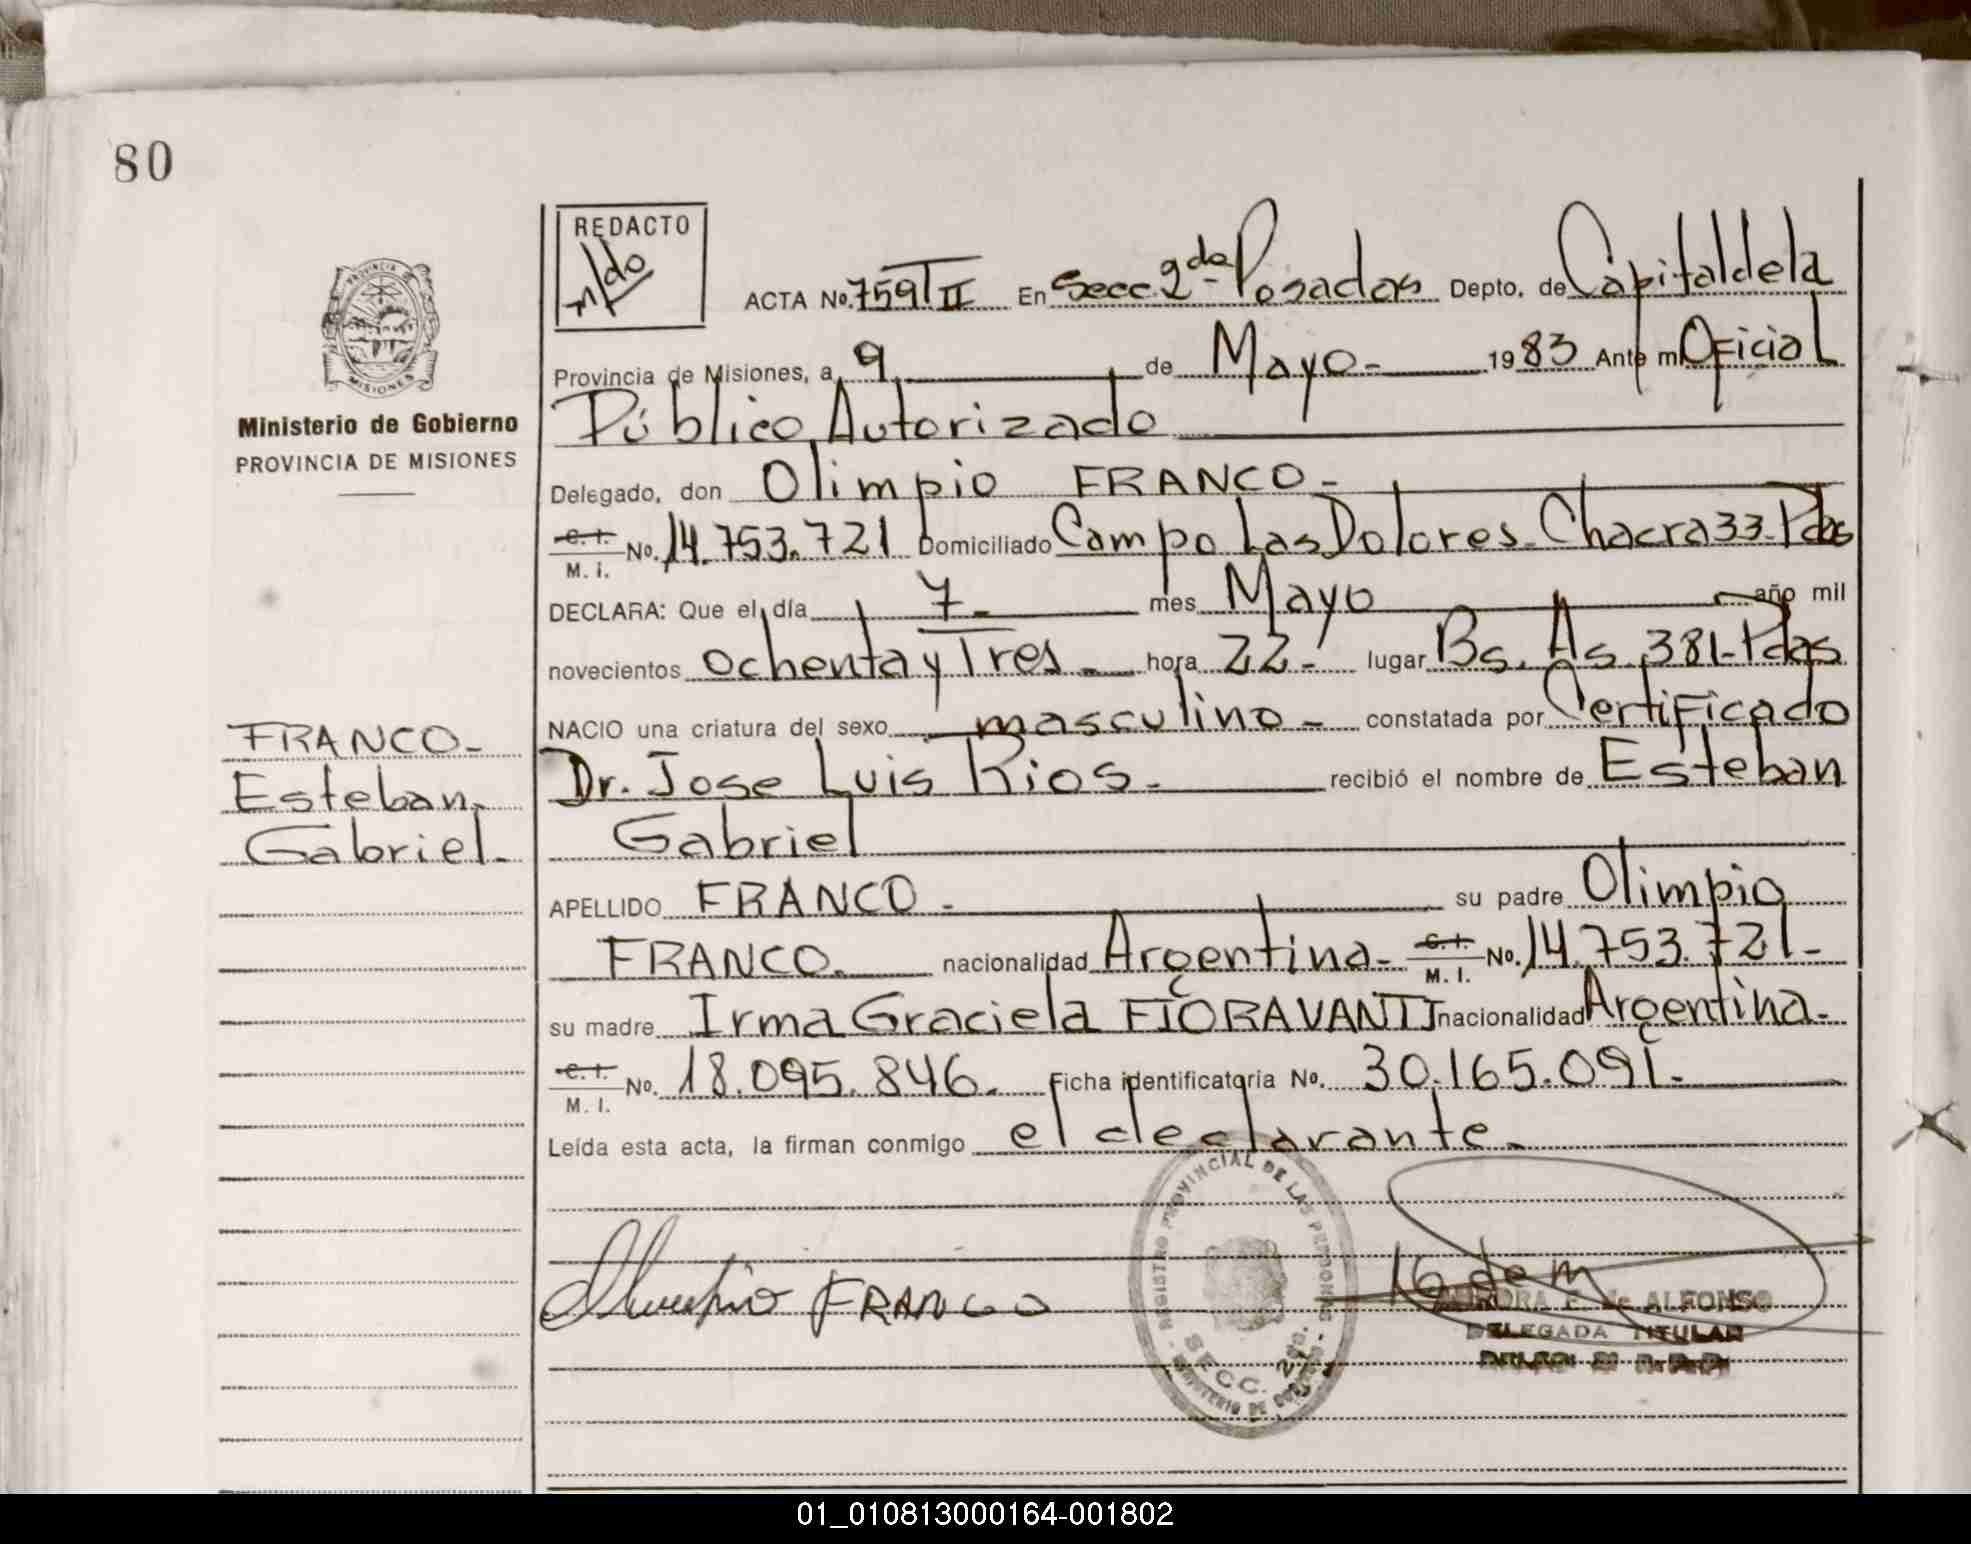 80
REDACTO
PROVINCIA DE
MISIONES
ACTA No. 759 T II En Secc. 2da Posadas Depto. de Capital de la
Provincia de Misiones, a 9 de Mayo - 1983 Ante mi Oficial
Ministerio de Gobierno
Público Autorizado
PROVINCIA DE MISIONES
Delegado, don Olimpio FRANCO -
C. I. No. 14.753.721 Domiciliado Campo Las Dolores - Chacra 33 - Pdas
M. I.
DECLARA: Que el día 7 - mes Mayo año mil
novecientos ochenta y Tres - hora 22 - lugar Bs. As. 381 - Pdas
NACIO una criatura del sexo masculino - constatada por Certificado
FRANCO -
Dr. Jose Luis Rios - recibió el nombre de Esteban
Esteban
Gabriel
Gabriel -
APELLIDO FRANCO - su padre Olimpio
FRANCO. nacionalidad Argentina - C. I. No. 14.753.721 -
M. I.
su madre Irma Graciela FIORAVANTI nacionalidad Argentina -
C. I. No. 18.095.846 - Ficha identificatoria No. 30.165.091 -
M. I.
Leída esta acta, la firman conmigo el declarante -
REGISTRO PROVINCIAL DE LAS PERSONAS
SECC. 2da.
MINISTERIO DE GOBIERNO
FRANCO
E. de ALFONSO
DELEGADA TITULAR
01_010813000164-001802